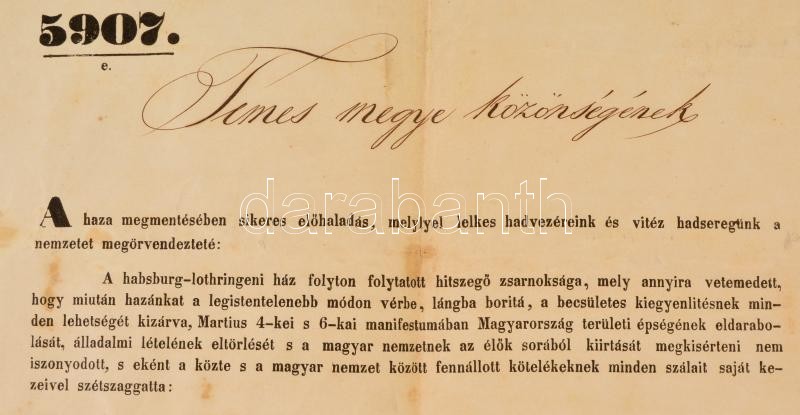 5907.
e.
Temes megye közönségének
A haza megmentésében sikeres előhaladás, melylyel lelkes hadvezéreink és vitéz hadseregünk a
nemzetet megörvendezteté:
A habsburg-lothringeni ház folyton folytatott hitszegő zsarnoksága, mely annyira vetemedett,
hogy miután hazánkat a legistentelenebb módon vérbe, lángba boritá, a becsületes kiegyenlitésnek min-
den lehetségét kizárva, Martius 4-kei s 6-kai manifestumában Magyarország területi épségének eldarabo-
lását, álladalmi lételének eltörlését s a magyar nemzetnek az élők sorából kiirtását megkisérteni nem
iszonyodott, s eként a közte s a magyar nemzet között fennállott kötelékeknek minden szálait saját ke-
zeivel szétszaggatta:
darabanth